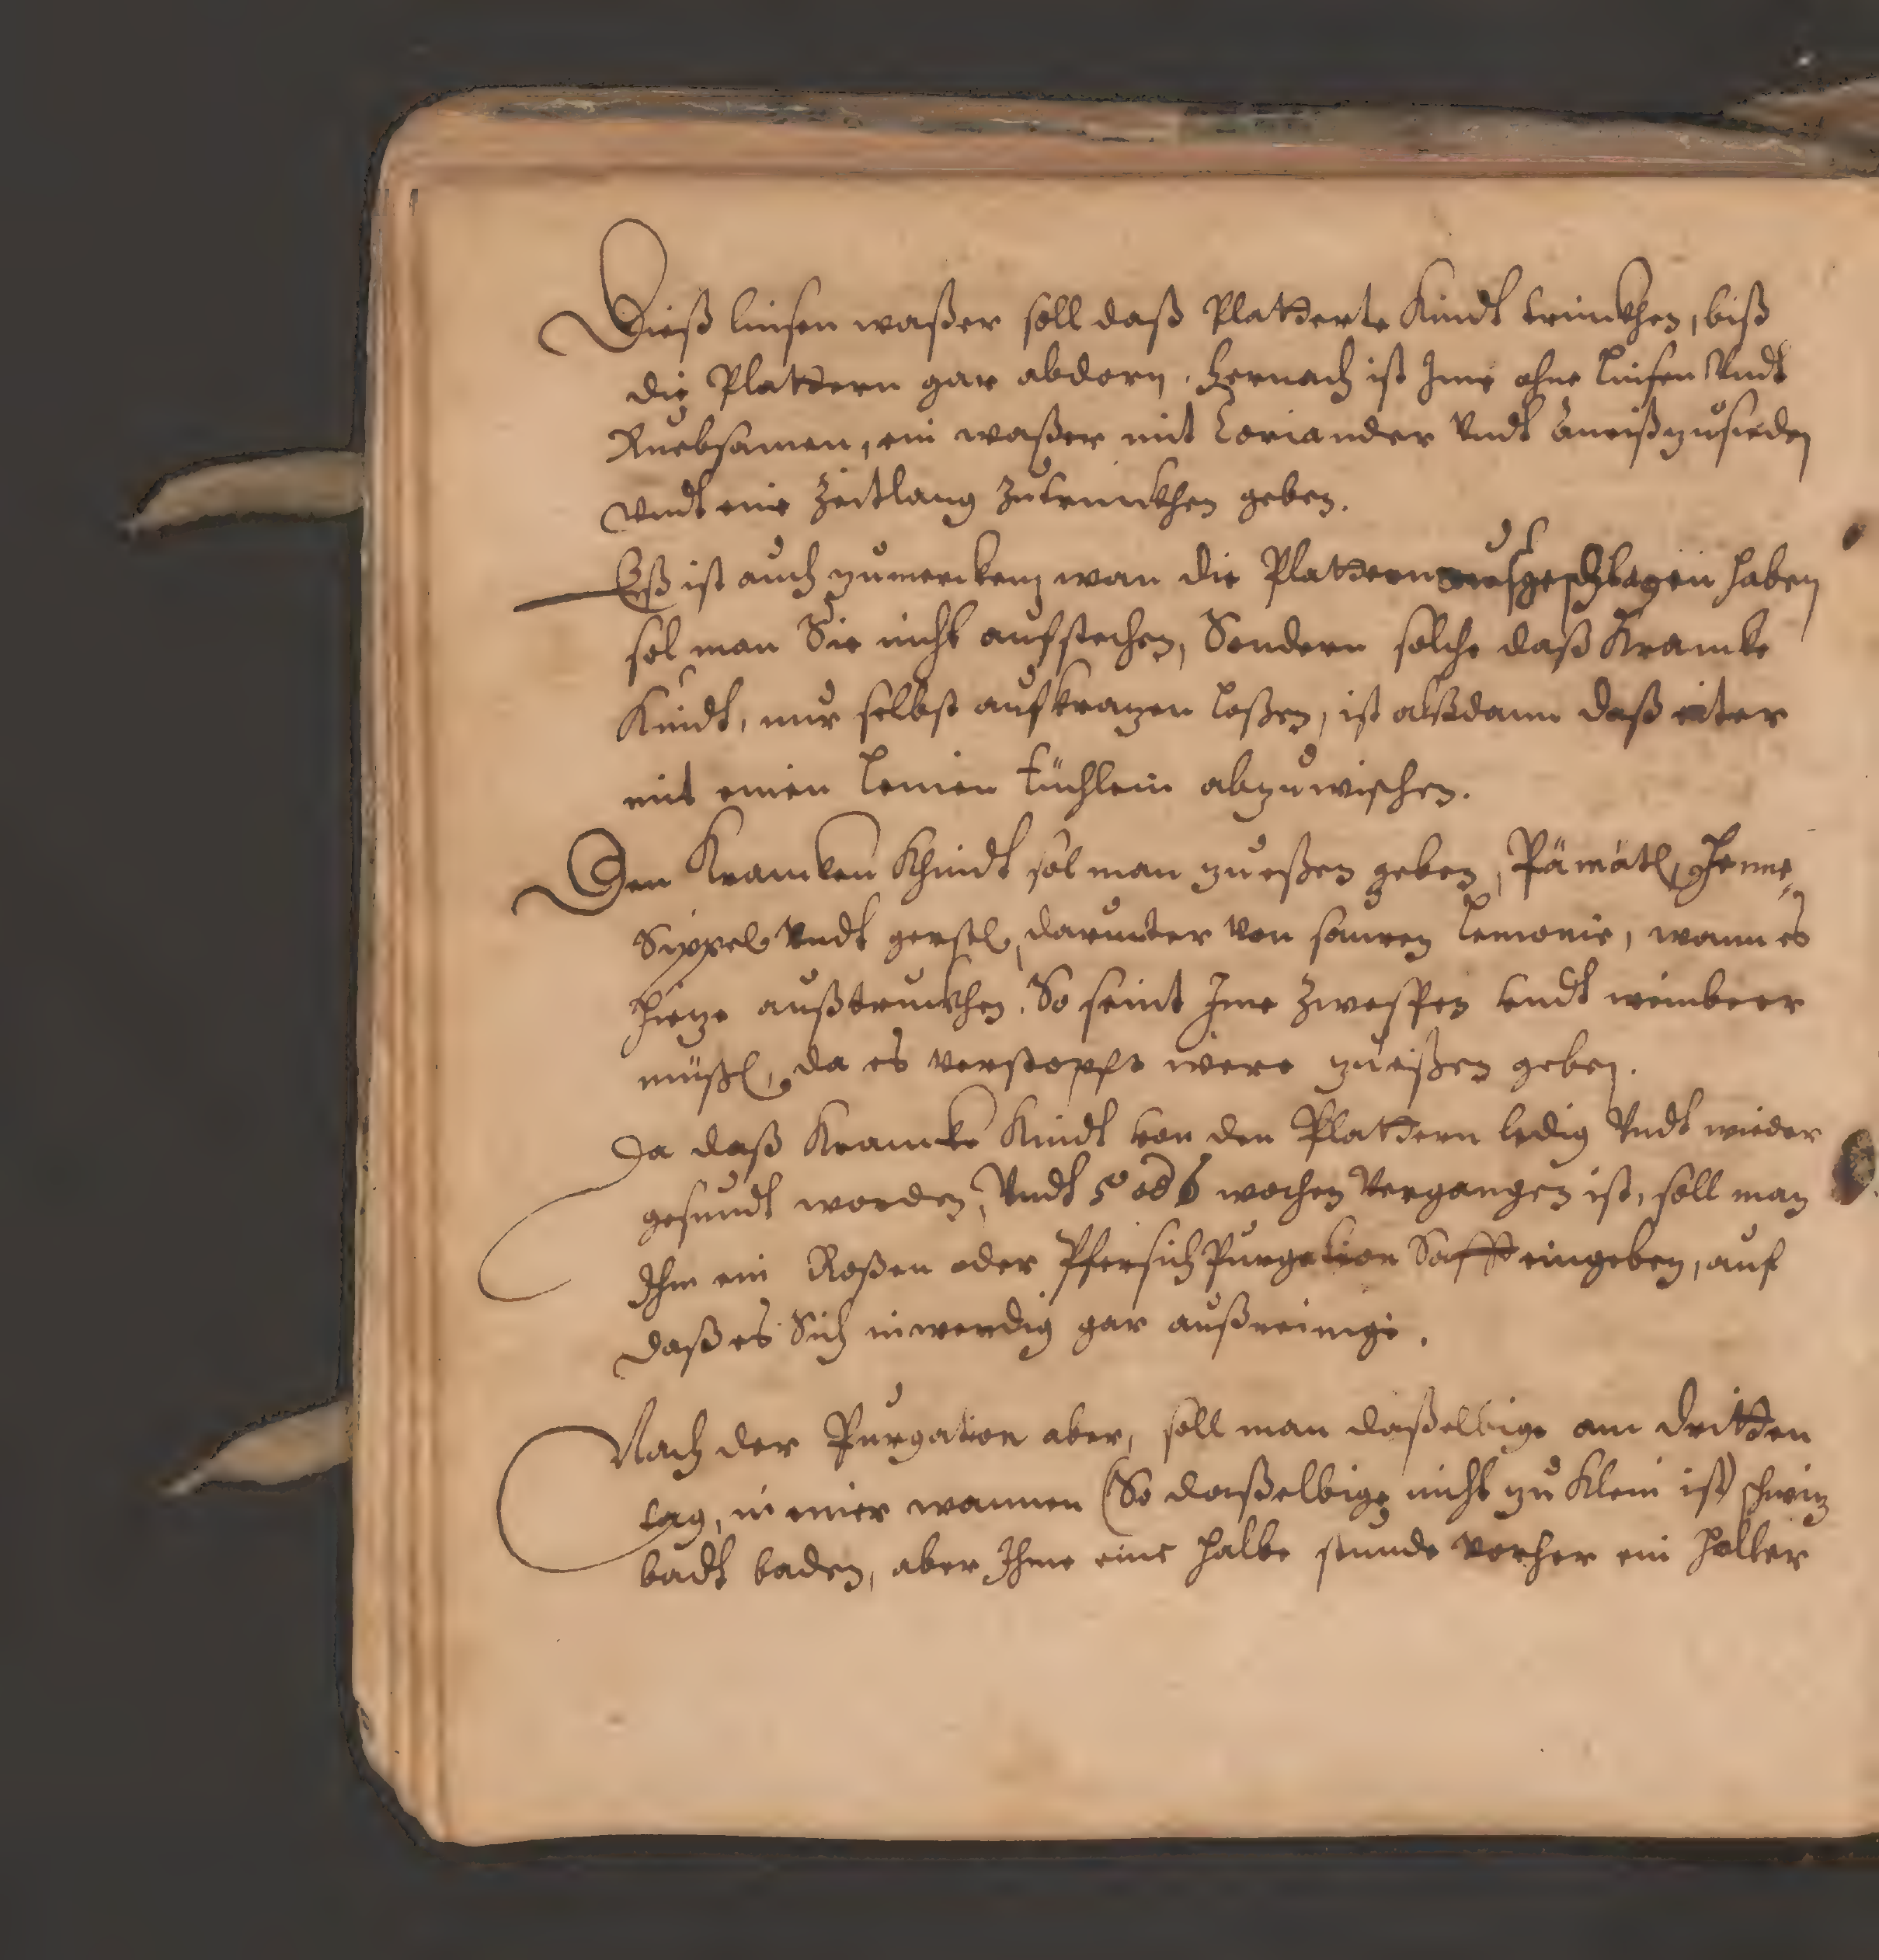 Dieß linsen waßer soll daß Platterte Kindt trinckhen, biß
die Plattern gar abdorn. Hernach ist Ime ohne Linsen Vndt
Ruebsamen, ein waßer mit Coriander Vndt Aneiß zusieden
Vndt eine Zeitlang Zutrinckhen geben.
Eß ist auch zumercken wan die Plattern außgeschlagen haben
sol man Sie nicht aufstechen, Sondern solche daß Krancke
Kindt, nur selbst aufkrazen laßen, ist alßdann daß eiter
mit einen Leinen tüchlein abzuwischen.
Den Krancken Khindt sol man zueßen geben, Pämätl, Henne
Süppel Vndt gerstl, darunter von sauren Lemonie, wann es
Hieze außtruckhen. So seint Ime Zwespen vndt weinbeer
müßl, da es verstopft were zueißen geben.
Da daß Krancke Kindt von den Plattern ledig Vndt wieder
gesundt worden, Vndt 5 od 6 wochen Vergangen ist, soll man
Ihm ein Roßen oder Pfersich Purgation Safft eingeben, auf
daß es Sich inwendig gar außreinige.
Nach der Purgation aber, soll man daßelbige am dritten
tag, in einer wannen (So daßelbige nicht zu Klein ist) schwiz
badt baden, aber Ihme eine halbe stunde vorher ein Holler